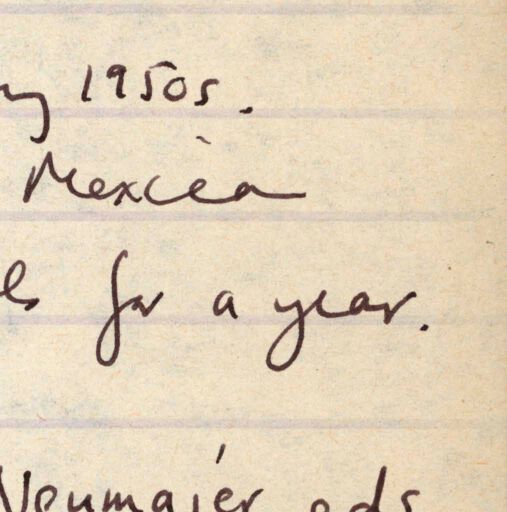 1950s.
Mexican
for a year.
Neumaier eds